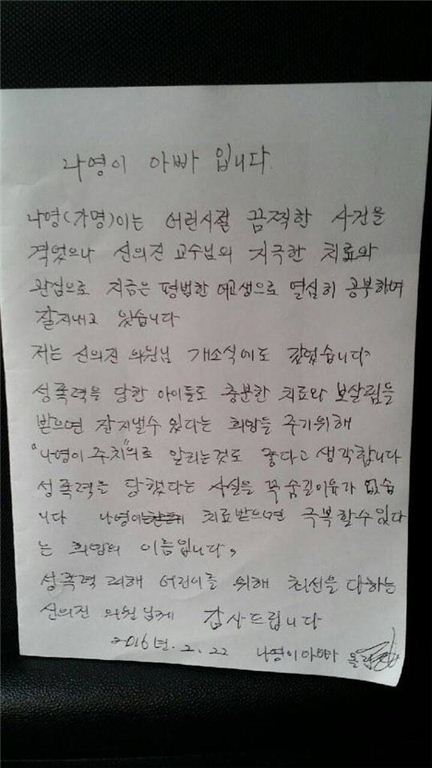 나영이 아빠 입니다.
나영(가명)이는 어린시절 끔찍한 사건을
격었으나 신의진 교수님의 지극한 치료와
관심으로 지금은 평범한 여고생으로 열심히 공부하며
잘지내고 있습니다
저는 신의진 의원님 개소식에도 갔었습니다.
성폭력을 당한 아이들도 충분한 치료와 보살핌을
받으면 잘지낼수 있다는 희망을 주기위해
"나영이 주치"의로 알리는것도 좋다고 생각합니다
성폭력을 당했다는 사실을 꼭 숨길이유가 없습
니다 나영이는 치료받으면 극복할수있다
는 희망의 이름입니다,
성폭력 피해 어린이를 위해 최선을 다하는
신의진 의원님께 감사드립니다
2016년. 2. 22 나영이 아빠 올림